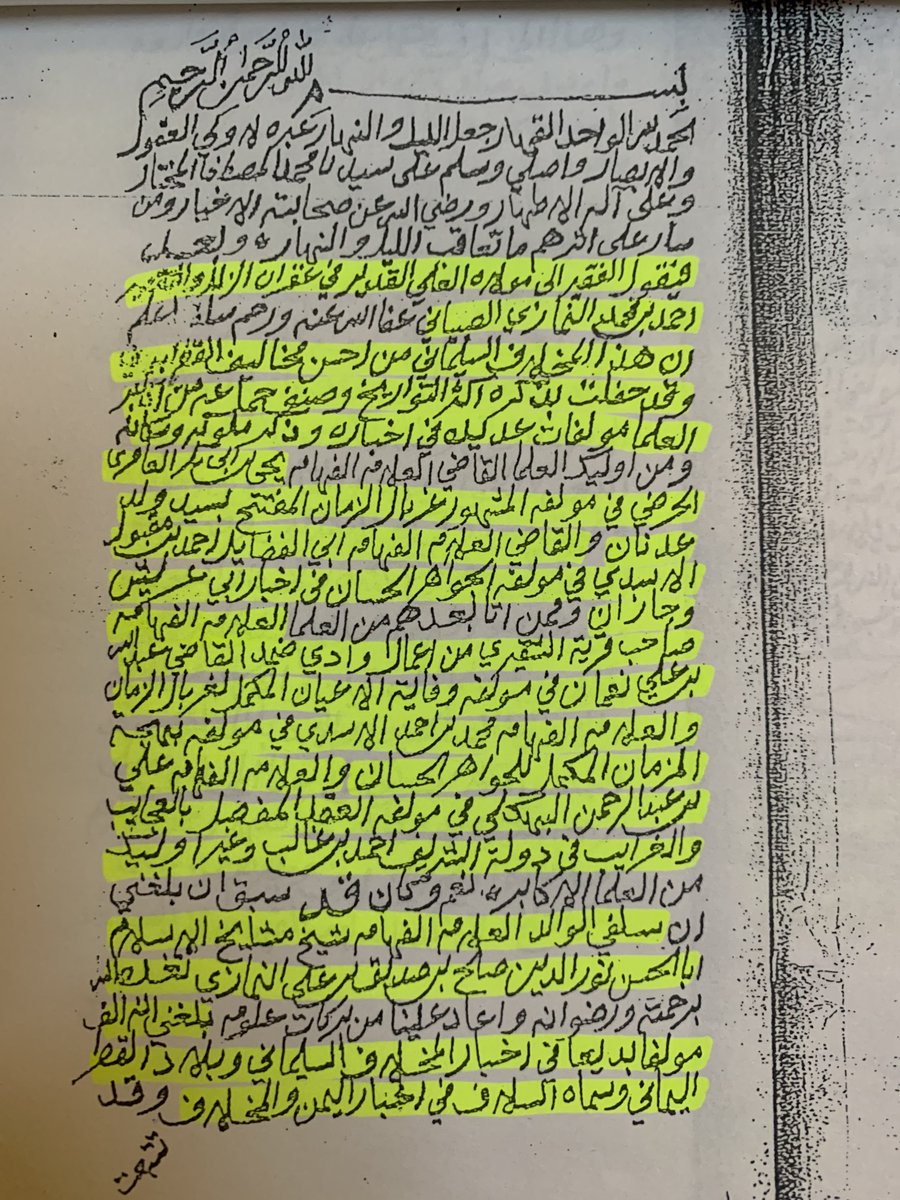 بسم الله الرحمن الرحيم
الحمد لله الواحد القهار جعل الليل والنهار عبره لاولي العقول
والابصار واصلي وسلم على سيدنا محمد المصطفى المختار
وعلى آله الاطهار ورضي الله عن صحابته الاخيار ومن
سار على اثرهم ما تعاقب الليل والنهار وبعد
فيقول الفقير الى مولاه الغني القدير في غفران الزلل
احمد بن محمد النمازي الضبياني عفا الله عنه ورحم سلفه اعلم
ان هذا المخلاف السليماني من احسن مخاليف القطر
وقد حفلت بذكره اكثر التواريخ وصنف جماعه من اكابر
العلما مولفات عديده في اخباره وذكر ملوكه
ومن اوليك العلما القاضي العلامه الفهامه يحيى بن ابي بكر العامري
الحرضي في مولفه المشهور غربال الزمان المفتتح بسيد ولد
عدنان والقاضي العلامه الفهامه ابي الفضايل احمد بن مقبول
الاسدي في مولفه الجواهر الحسان في اخبار ابي عريش
وجازان وممن اتا بعدهم من العلما العلامه الفهامه
صاحب قرية الشقيري من اعمال وادي ضمد القاضي عبدالله
بن علي نعمان في مولفه وفاية الاعيان المكمل لغربال الزمان
والعلامه الفهامه محمد بن احمد الاسدي في مولفه
المزمان المكمل للجواهر الحسان والعلامه الفهامه علي
بن عبدالرحمن البهكلي في مولفه العقد المفصل بالعجايب
والغرايب في دولة الشريف احمد بن غالب وغير اوليك
من العلما الاكابره نعم وكان قد سبق ان بلغني
ان سلفي الوالد العلامه الفهامه شيخ مشايخ الاسلام
ابا الحسن نور الدين صالح بن صديق بن علي النمازي تغمده الله
برحمته ورضوانه واعاد علينا من بركات علومه بلغني انه الف
مولفا بديعا في اخبار المخلاف السليماني وبلاد القطر
اليماني وسماه السلاف في اخبار اليمن والمخلاف وقد